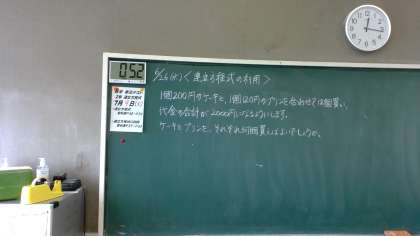 6/26(水)<連立方程式の利用>
1個200円のケーキと、1個120円のプリンを合わせて12個買い、
代金の合計が2000円になるようにします。
ケーキとプリンを、それぞれ何個買えばよいでしょうか。
052
7月
日